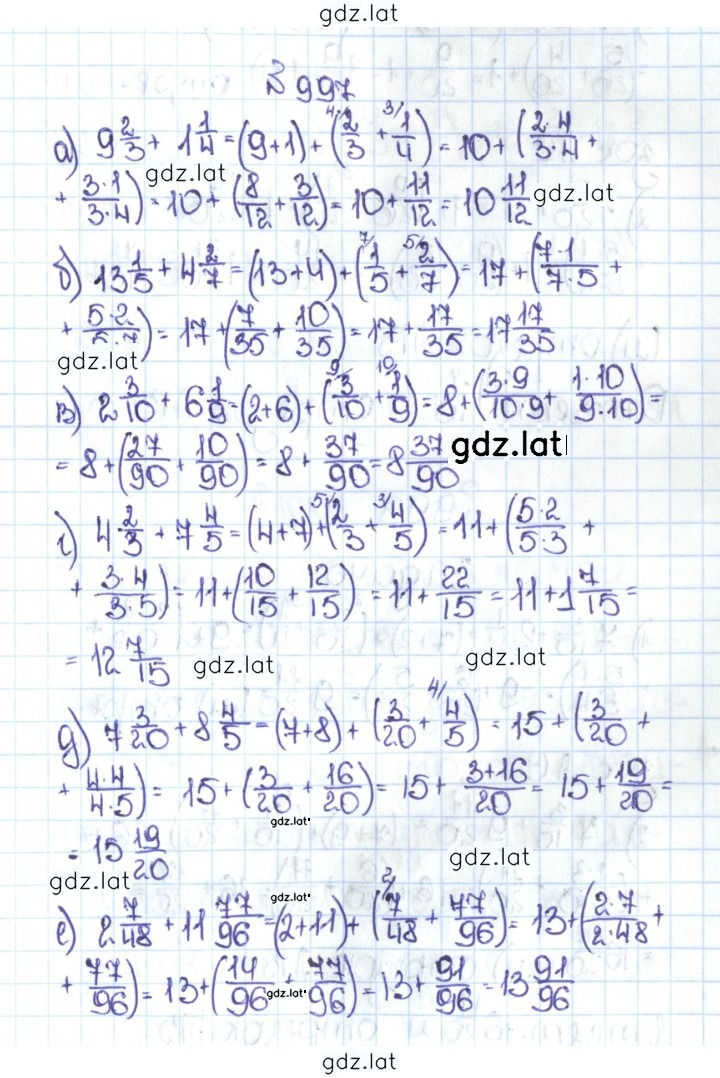 gdz.lat
№ 997
а) 9 2/3 + 1 1/4 = (9+1) + (4/ 2/3 + 3/ 1/4) = 10 + (2·4/3·4 +
gdz.lat
+ 3·1/3·4) = 10 + (8/12 + 3/12) = 10 + 11/12 = 10 11/12 gdz.lat
б) 13 1/5 + 4 2/7 = (13+4) + (7/ 1/5 + 5/ 2/7) = 17 + (7·1/7·5 +
+ 5·2/5·7) = 17 + (7/35 + 10/35) = 17 + 17/35 = 17 17/35
gdz.lat
в) 2 3/10 + 6 1/9 = (2+6) + (9/ 3/10 + 10/ 1/9) = 8 + (3·9/10·9 + 1·10/9·10) =
= 8 + (27/90 + 10/90) = 8 + 37/90 = 8 37/90 gdz.lat
г) 4 2/3 + 7 4/5 = (4+7) + (5/ 2/3 + 3/ 4/5) = 11 + (5·2/5·3 +
+ 3·4/3·5) = 11 + (10/15 + 12/15) = 11 + 22/15 = 11 + 1 7/15 =
= 12 7/15 gdz.lat gdz.lat
д) 7 3/20 + 8 4/5 = (7+8) + (3/20 + 4/ 4/5) = 15 + (3/20 +
+ 4·4/4·5) = 15 + (3/20 + 16/20) = 15 + 3+16/20 = 15 + 19/20 =
gdz.lat
= 15 19/20 gdz.lat
gdz.lat
gdz.lat
е) 2 7/48 + 11 77/96 = (2+11) + (2/ 7/48 + 77/96) = 13 + (2·7/2·48 +
+ 77/96) = 13 + (14/96 + 77/96) = 13 + 91/96 = 13 91/96
gdz.lat
gdz.lat